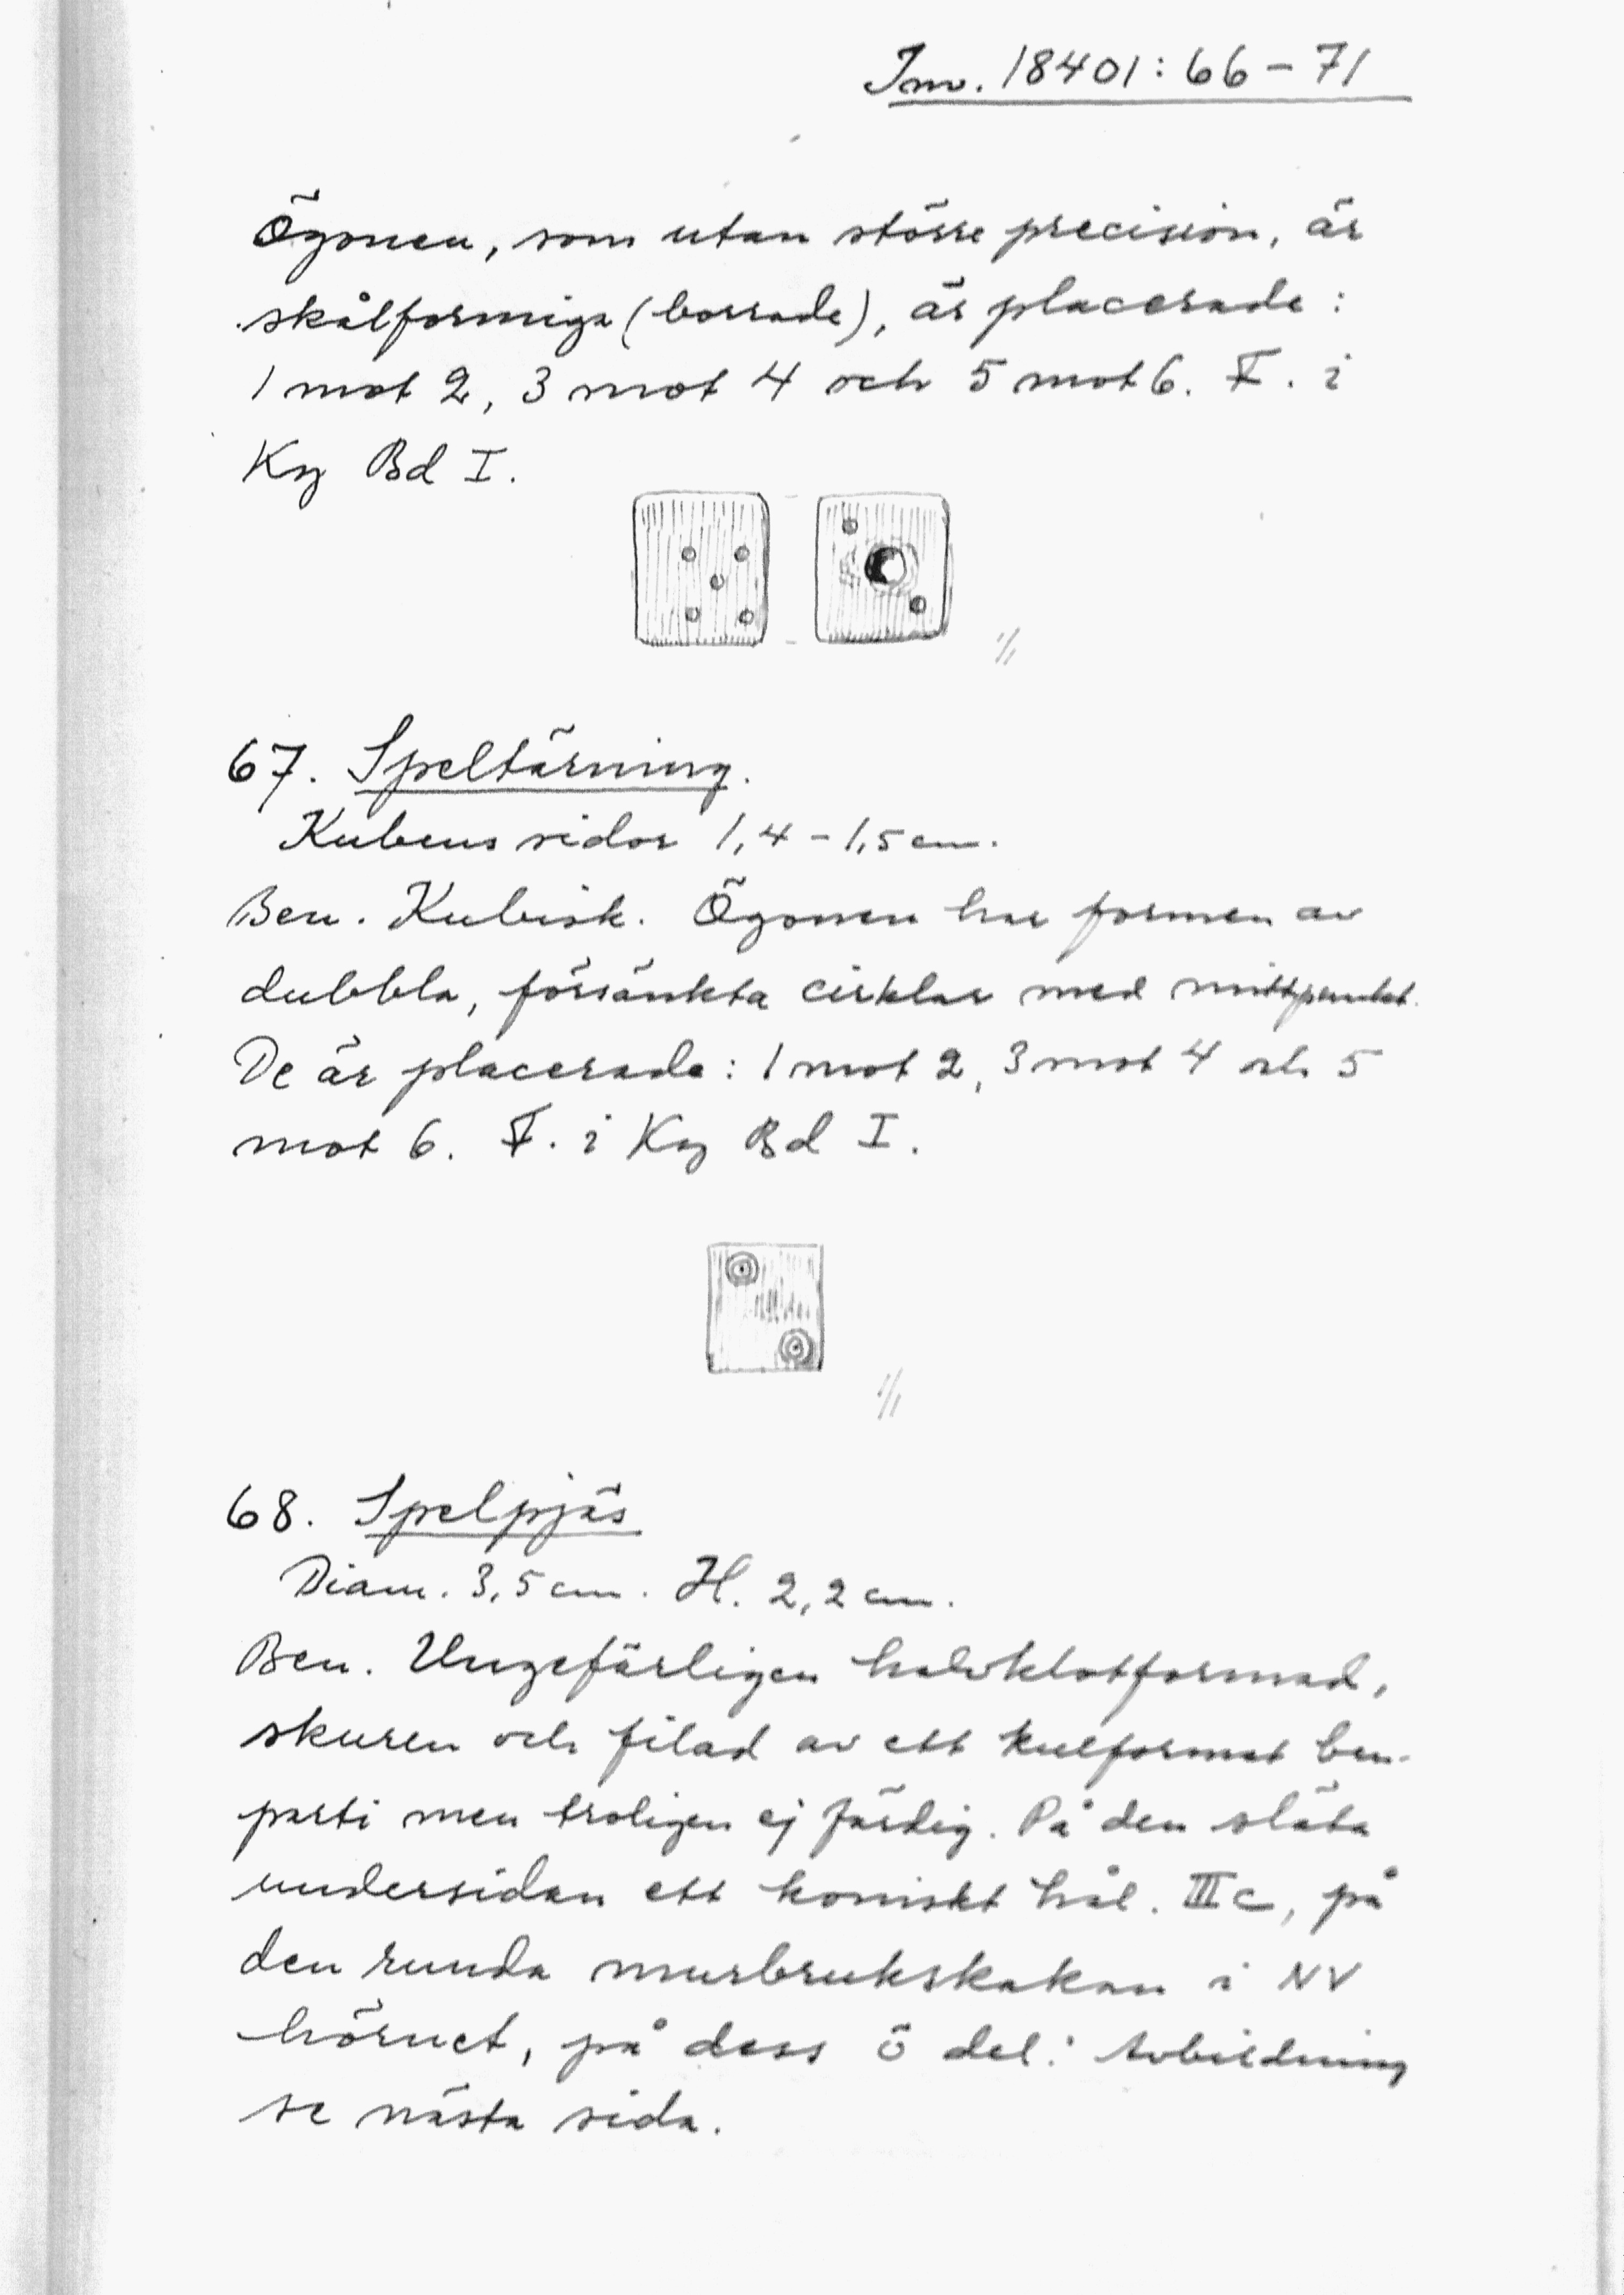 Inv. 18401:66-71
Ögonen, som utan större precision, är
skålformiga (borrade), är placerade:
1 mot 2, 3 mot 4 och 5 mot 6. F. i
Kg Bd I.
1/1
67. Speltärning.
Kubens sidor 1,4-1,5 cm.
Ben. Kubisk. Ögonen har formen av
dubbla, försänkta cirklar med mittpunkt.
De är placerade: 1 mot 2, 3 mot 4 och 5
mot 6. F. i Kg Bd I.
1/1
68. Spelpjäs
Diam. 3,5 cm. H. 2,2 cm.
Ben. Ungefärligen halvklotformad,
skuren och filad av ett kulformat ben-
parti men troligen ej färdig. På den släta
undersidan ett koniskt hål. III C, på
den runda murbrukskakan i NV
hörnet, på dess ö del. Avbildning
se nästa sida.